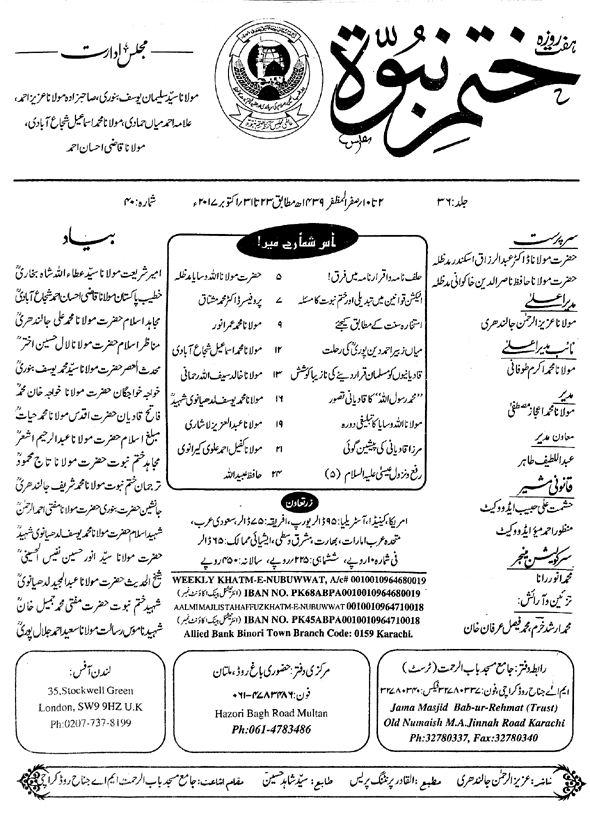 ہفت روزہ
ختم نبوة
مجلس ادارت
مولانا سیّد سلیمان یوسف بنوری، صاحبزادہ مولانا عزیز احمد،
علامہ احمد میاں حمادی، مولانا محمد اسماعیل شجاع آبادی،
مولانا قاضی احسان احمد
جلد: ۳۶
۲ تا ۱۰ صفر المظفر ۱۴۳۹ھ مطابق ۲۳ تا ۳۱ اکتوبر ۲۰۱۷ء
شمارہ: ۴۰
سرپرست
حضرت مولانا ڈاکٹر عبدالرزاق اسکندر مدظلہ
حضرت مولانا حافظ ناصر الدین خاکوانی مدظلہ
مدیر اعلیٰ
مولانا عزیز الرحمٰن جالندھری
نائب مدیر اعلیٰ
مولانا محمد اکرم طوفانی
مدیر
مولانا محمد اعجاز مصطفیٰ
معاون مدیر
عبداللطیف طاہر
قانونی مشیر
حشمت علی حبیب ایڈووکیٹ
منظور احمد میؤ ایڈووکیٹ
سرکولیشن منیجر
محمد انور رانا
تزئین و آرائش:
محمد ارشد خرم، محمد فیصل عرفان خان
اس شمارے میں!
حلف نامہ و اقرار نامہ میں فرق! ۵ حضرت مولانا اللہ وسایا مدظلہ
الیکشن قوانین میں تبدیلی اور ختم نبوت کا مسئلہ ۷ پروفیسر ڈاکٹر محمد مشتاق
استخارہ سنت کے مطابق کیجئے ۹ مولانا محمد عمر انور
میاں زبیر احمد دین پوریؒ کی رحلت ۱۲ مولانا محمد اسماعیل شجاع آبادی
قادیانیوں کو مسلمان قرار دینے کی نازیبا کوشش ۱۳ مولانا خالد سیف اللہ رحمانی
”محمد رسول اللہ“ کا قادیانی تصور ۱۶ مولانا محمد یوسف لدھیانوی شہیدؒ
مولانا اللہ وسایا کا تبلیغی دورہ ۱۹ مولانا عبدالعزیز لاشاری
مرزا قادیانی کی پیشین گوئی ۲۱ مولانا کفیل احمد علوی کیرانوی
رفع و نزول عیسیٰ علیہ السلام (۵) ۲۴ حافظ عبیداللہ
بیاد
امیر شریعت مولانا سیّد عطاء اللہ شاہ بخاریؒ
خطیب پاکستان مولانا قاضی احسان احمد شجاع آبادیؒ
مجاہد اسلام حضرت مولانا محمد علی جالندھریؒ
مناظر اسلام حضرت مولانا لال حسین اخترؒ
محدث العصر حضرت مولانا سیّد محمد یوسف بنوریؒ
خواجہ خواجگان حضرت مولانا خواجہ خان محمدؒ
فاتح قادیان حضرت اقدس مولانا محمد حیاتؒ
مبلغ اسلام حضرت مولانا عبدالرحیم اشعرؒ
مجاہد ختم نبوت حضرت مولانا تاج محمودؒ
ترجمان ختم نبوت مولانا محمد شریف جالندھریؒ
جانشین حضرت بنوری حضرت مولانا مفتی احمد الرحمٰنؒ
شہید اسلام حضرت مولانا محمد یوسف لدھیانوی شہیدؒ
حضرت مولانا سیّد انور حسین نفیس الحسینیؒ
شیخ الحدیث حضرت مولانا عبدالمجید لدھیانویؒ
شہید ختم نبوت حضرت مفتی محمد جمیل خانؒ
شہید ناموس رسالت مولانا سعید احمد جلال پوریؒ
زر تعاون
امریکا، کینیڈا، آسٹریلیا: ۹۵ ڈالر یورپ، افریقہ: ۷۵ ڈالر، سعودی عرب،
متحدہ عرب امارات، بھارت، مشرق وسطیٰ، ایشیائی ممالک: ۶۵ ڈالر
فی شمارہ ۱۰ روپے، ششماہی: ۲۲۵ روپے، سالانہ: ۳۵۰ روپے
WEEKLY KHATM-E-NUBUWWAT, A/c# 0010010964680019
IBAN NO. PK68ABPA0010010964680019 (انٹرنیشنل بینک اکاؤنٹ نمبر)
AALMIMAJLISTAHAFFUZKHATM-E-NUBUWWAT 0010010964710018
IBAN NO. PK45ABPA0010010964710018 (انٹرنیشنل بینک اکاؤنٹ نمبر)
Allied Bank Binori Town Branch Code: 0159 Karachi.
رابطہ دفتر: جامع مسجد باب الرحمت (ٹرسٹ)
ایم اے جناح روڈ کراچی، فون: ۳۲۷۸۰۳۳۷ فیکس: ۳۲۷۸۰۳۴۰
Jama Masjid Bab-ur-Rehmat (Trust)
Old Numaish M.A.Jinnah Road Karachi
Ph:32780337, Fax:32780340
مرکزی دفتر: حضوری باغ روڈ، ملتان
فون: ۰۶۱-۴۷۸۳۴۸۶
Hazori Bagh Road Multan
Ph:061-4783486
لندن آفس:
35,Stockwell Green
London, SW9 9HZ U.K
Ph:0207-737-8199
ناشر: عزیز الرحمٰن جالندھری مطبع: القادر پرنٹنگ پریس طابع: سیّد شاہد حسین مقام اشاعت: جامع مسجد باب الرحمت ایم اے جناح روڈ کراچی